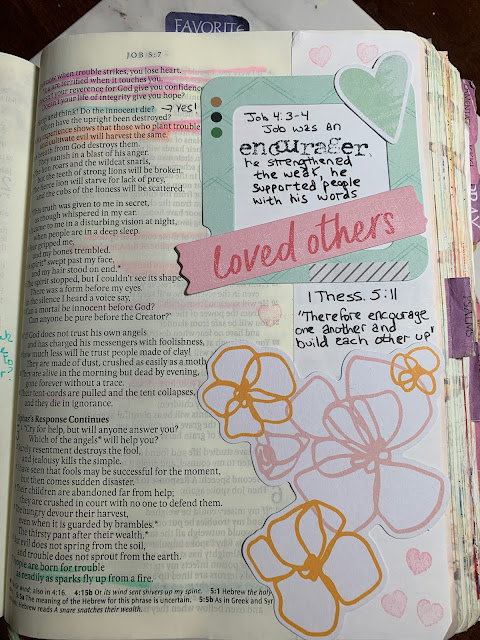 FAVORITE
JOB 5:7
when trouble strikes, you lose heart.
are terrified when it touches you.
your reverence for God give you confidence
your life of integrity give you hope?
and think! Do the innocent die? → yes!
have the upright been destroyed?
experience shows that those who plant trouble
cultivate evil will harvest the same.
breath from God destroys them.
They vanish in a blast of his anger.
lion roars and the wildcat snarls,
the teeth of strong lions will be broken.
fierce lion will starve for lack of prey,
and the cubs of the lioness will be scattered.
"This truth was given to me in secret,
though whispered in my ear.
came to me in a disturbing vision at night,
when people are in a deep sleep.
gripped me,
and my bones trembled.
spirit* swept past my face,
and my hair stood on end.*
spirit stopped, but I couldn't see its shape.
There was a form before my eyes.
the silence I heard a voice say,
a mortal be innocent before God?
Can anyone be pure before the Creator?'
God does not trust his own angels
and has charged his messengers with foolishness,
much less will he trust people made of clay!
They are made of dust, crushed as easily as a moth.
are alive in the morning but dead by evening,
gone forever without a trace.
Their tent-cords are pulled and the tent collapses,
and they die in ignorance.
Response Continues
"Cry for help, but will anyone answer you?
Which of the angels* will help you?
resentment destroys the fool,
and jealousy kills the simple.
have seen that fools may be successful for the moment,
but then comes sudden disaster.
Their children are abandoned far from help;
they are crushed in court with no one to defend them.
The hungry devour their harvest,
even when it is guarded by brambles.*
The thirsty pant after their wealth.*
evil does not spring from the soil,
and trouble does not sprout from the earth.
People are born for trouble
as readily as sparks fly up from a fire.
wind; also in 4:16. 4:15b Or its wind sent shivers up my spine. 5:1 Hebrew the holy
5:5a The meaning of the Hebrew for this phrase is uncertain. 5:5b As in Greek and Syr
Hebrew reads A snare snatches their wealth.
Job 4:3-4
Job was an
encourager,
he strengthened
the weak, he
supported people
with his words
loved others
1 Thess. 5:11
"Therefore encourage
one another and
build each other up"
PRAY
PSALMS